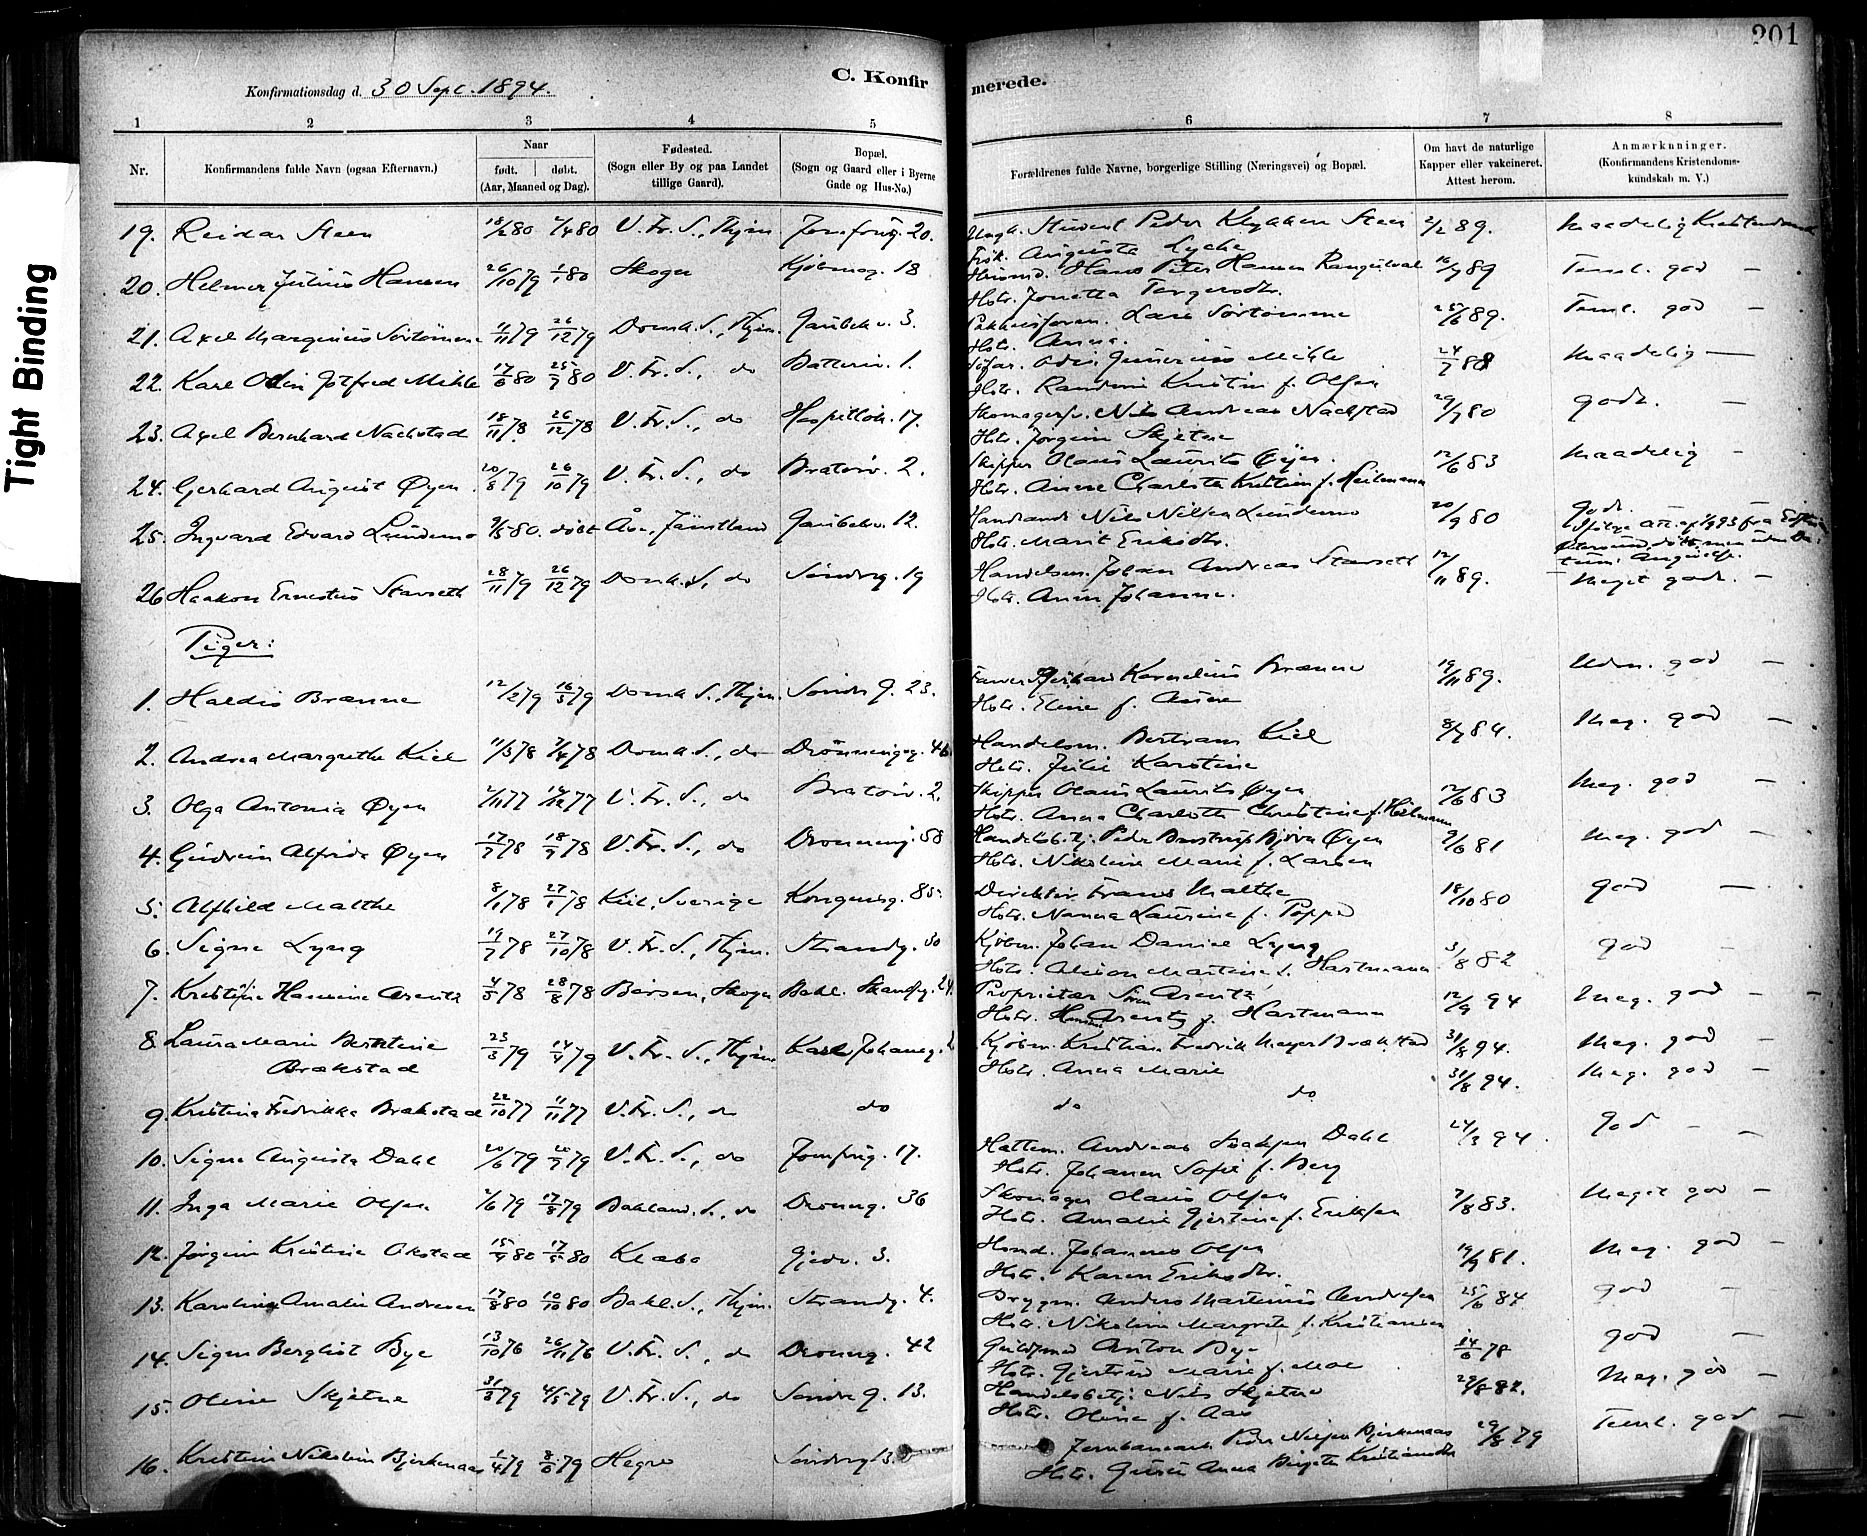 Tight Binding
201
C. Konfirmerede.
Konfirmationsdag d. 30 Sept. 1894.
1 2 3 4 5 6 7 8
Nr. Konfirmandens fulde Navn (ogsaa Efternavn.) Naar født. døbt. (Aar, Maaned og Dag). Fødested. (Sogn eller By og paa Landet tillige Gaard). Bopæl. (Sogn og Gaard eller i Byerne Gade og Hus-No.) Forældrenes fulde Navne, borgerlige Stilling (Næringsvei) og Bopæl. Om havt de naturlige Kapper eller vakcineret. Attest herom. Anmærkninger. (Konfirmandens Kristendomskundskab m. V.)
19. Reidar Steen 18/2 80 V. Fr. S., Thjm 20. Student Peder Steen 2/2 89. maadelig
Frk. Augusta Lyche
20. Helmer Julius Hansen 26/10 79 1/1 80 Skogn Kjøbmag. 18 Hans Peter Hansen 16/7 89 Teml. god —
Hstr. Jonetta Torgersdtr.
21. Axel Marginius Sörtömme 1/11 79 26/12 79 Domk. S., Thjm. Gaubekv. 3. Lars Sörtömme 25/6 89. Teml. god —
Hstr. Anna.
22. Karl Odin Gotfred Mihle 17/6 80 25/7 80 V. Fr. S., do Batteriv. 1. Odin Gunerius Mihle 24/7 88 maadelig —
Hstr. Randine Kristin f. Olsen
23. Axel Bernhard Nachstad 18/11 78 26/12 78 V. Fr. S., do 17. Skomagersv. Nils Andreas Nachstad 29/7 80 godt. —
Hstr. Jørgine Skjetne
24. Gerhard August Øyen 20/8 79 26/10 79 V. Fr. S., do Bratörv. 2. Skipper Olaus Laurits Øyen. 12/6 83 maadelig —
Hstr. Anna Charlotte Kristine f. Heilmann
25. Ingvard Edvard Lundemo 9/5 80. döbt Åre, Jämtland Gaubekv. 12. Nils Nilsen Lundemo 20/9 80 godt.
Hstr. Marit Eriksdtr.
26 Haakon Ernestus Stavseth 28/11 79 26/12 79 Domk. S., do Söndreg. 19 Handelsm. Johan Andreas Stavseth 12/11 89. meget godt. —
Hstr. Anne Johanne.
Piger:
1. Haldis Brænne 12/2 79 16/3 79 Domk S., Thjm. Söndre g. 23. Farver Kornelius Brænne 19/11 89. Udm. god —
Hstr. Eline f. Aune
2. Andrea Margrethe Kiel 11/3 78 7/4 78 Domk S., do Dronningsg. 46 Handelsm. Bertram Kiel 8/7 84. Meg. god —
Hstr. Julie Karstine
3. Olga Antonia Øyen 2/11 77 V. Fr. S., do Bratörv. 2. Skipper Olaus Laurits Øyen 12/6 83 Meg. god —
Hstr. Anna Charlotte Christine f. Heilmann
4. Gudrun Alfrida Øyen 17/7 78 18/9 78 V. Fr. S., do Dronning. 58 Handelsbetj. Peder Øyen 9/6 81 Meg. god —
Hstr. Nikoline Marie f. Larsen
5. Alfhild Malthe 8/1 78 27/1 78 Kiil, Sverige Kongensg. 85. Direktör Frans Malthe 18/10 80 god —
Hstr. Nanna Laurine f. Poppe
6. Signe Lyng 19/7 78 27/10 78 V. Fr. S., Thjm. Strandg. 30 Kjöbm. Johan Daniel Lyng 3/8 82 god —
Hstr. Martine f. Hartmann
7. Kristine Hermine Arentz 4/5 78 28/8 78 Börsen, Skogn Bakl. 24. Proprietær Sören Arentz 12/9 94 Meg. god —
Hstr. Arentz f. Hartmann
8 Laura Marie Berntine 23/3 79 14/4 79 V. Fr. S., Thjm Karl Johansg. Kjöbm. Kristian Fredrik Meyer Brækstad 31/8 94. Meg. god —
Brækstad Hstr. Anna Marie
9. Kristina Fredrikka Brækstad 22/10 77 11/11 77 V. Fr. S., do do do do 31/8 94. Meg. god —
10. Signe Augusta Dahl 20/6 79 20/7 79 V. Fr. S., do Jomfrug. 17. Hattem. Andreas Dahl 24/3 94. god —
Hstr. Johanna Sofie f. Berg
11. Inga Marie Olsen 2/6 79 17/8 79 Bakland. S., do Dronng. 36 Skomager Olaus Olsen 7/8 83. Meget god —
Hstr. Amalie Gjertine f. Eriksen
12. Jørgine Kristine Okstad 15/4 80 17/5 80 Klæbo Gjedv. 3. Johannes Olsen 19/9 81. Meg. god —
Hstr. Karen Eriksdtr.
13. Karoline Amalie Andresen 17/8 80 10/10 80 Bakl. S., Thjm. Strandg. 4. Brygm. Anders Martinus Andresen 25/6 84 god —
Hstr. Nikoline Margrete f. Kristiansen
14. Signe Bergliot Bye 13/10 76 26/11 76 V. Fr. S., do Dronng. 42 Guldsmed Anton Bye 14/6 78 god —
Hstr. Gjertrud Marie f. Moe
15. Oline Skjetne 31/3 79 4/5 79 V. Fr. S., do Söndre g. 13. Handelsbetj. Nils Skjetne Meg. god —
Hstr. Oline f. Aas
16. Kristine Nikoline Bjerkenaas 1/4 79 8/6 79 Hegre Söndreg 13. Jernbanearb. Peder Nilsen Bjerkenaas 29/8 79 Teml. god —
Hstr. Guru Anna Birgitte Kristiansdtr